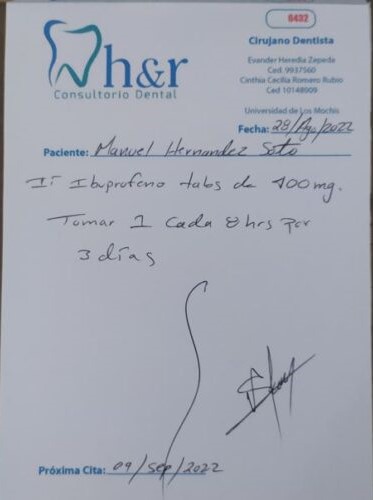 0402
h&r
Consultorio Dental
Cirujano Dentista
Evander Heredia Zepeda
Ced. 9937560
Cinthia Cecilia Romero Rubio
Ced 10148009
Universidad de Los Mochis
Fecha: 29/Ago/2022
Paciente: Manuel Hernandez Soto
Ibuprofeno tabs de 400mg.
Tomar 1 cada 8 hrs por
3 días
Próxima Cita: 09/Sep/2022